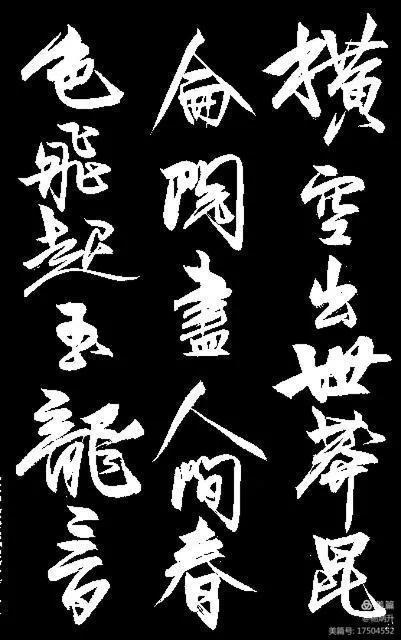 橫空出世莽昆
侖閱盡人間春
色飛起玉龍三百
美篇
美篇号: 17504552